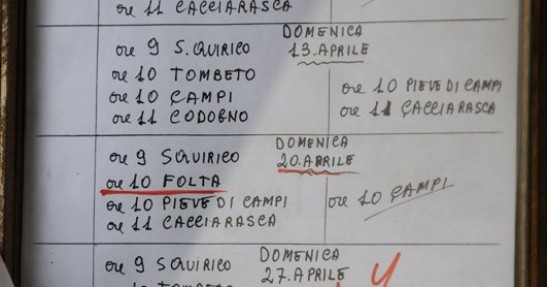 ore 11 CACCIARASCA
DOMENICA
ore 9 S.QUIRICO 13.APRILE
ore 10 TOMBETO
ore 10 CAMPI
ore 11 CODOGNO
ore 10 PIEVE DI CAMPI
ore 11 CACCIARASCA
DOMENICA
ore 9 SQUIRICO 20.APRILE
ore 10 FOLTA
ore 10 PIEVE DI CAMPI
ore 11 CACCIARASCA
ore 10 CAMPI
DOMENICA
ore 9 SQUIRICO 27.APRILE